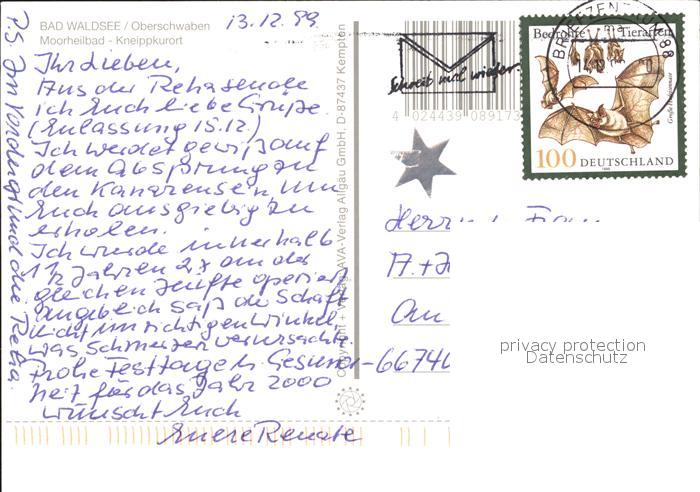 BAD WALDSEE / Oberschwaben
Moorheilbad - Kneippkurort
13.12.99
Ihr Lieben,
Aus der Rehasende
ich Euch liebe Grüße.
(Entlassung 15.12.)
Ich werdet gewiß auf
dem Absprung zu
den Kanaren sein um
Euch ausgiebig zu
erholen.
Ich wurde innerhalb
1 1/2 Jahren 2x an der
gleichen Hüfte operiert
angeblich saß der Schaft
nicht im richtigen Winkel,
was Schmerzen verursachte.
Frohe Festtage u. Gesund-
heit für das Jahr 2000
wünscht Euch
Eure Renate
P.S. Im Vordergrund die Reha.
Copyright + Verlag AVA-Verlag Allgäu GmbH, D-87437 Kempten
4 024439 089173
Schreib mal wieder
BRIEFZENTRUM 88
Bedrohte Tierarten
Große Hufeisennase
100 DEUTSCHLAND
1999
Herrn u. Frau
Am
66740
privacy protection
Datenschutz